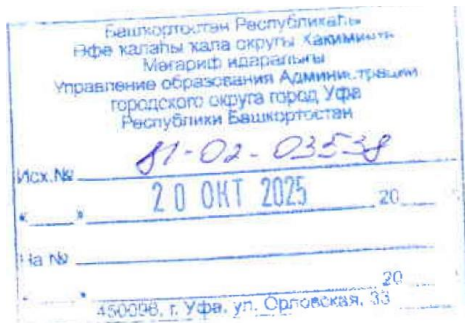 Башкортостан Республикаһы
Өфө ҡалаһы ҡала округы Хакимиәте
Мәғариф идаралығы
Управление образования Администрации
городского округа город Уфа
Республики Башкортостан
Исх.№ 81-02-03538
« » 20 ОКТ 2025 20
На №
« » 20
450098, г. Уфа, ул. Орловская, 33